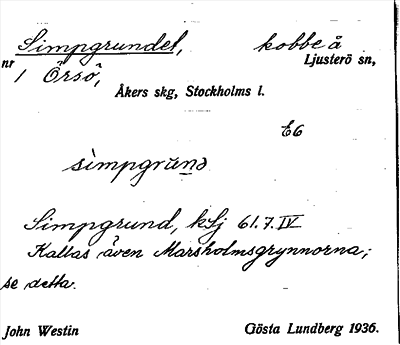 Simpgrundet, kobbe å
nr 1 Örsö, Ljusterö sn,
Åkers skg, Stockholms l.
E6
simpgrund
Simpgrund, kSj 61.7.IV
Kallas även Marsholmsgrynnorna;
se detta.
John Westin Gösta Lundberg 1936.